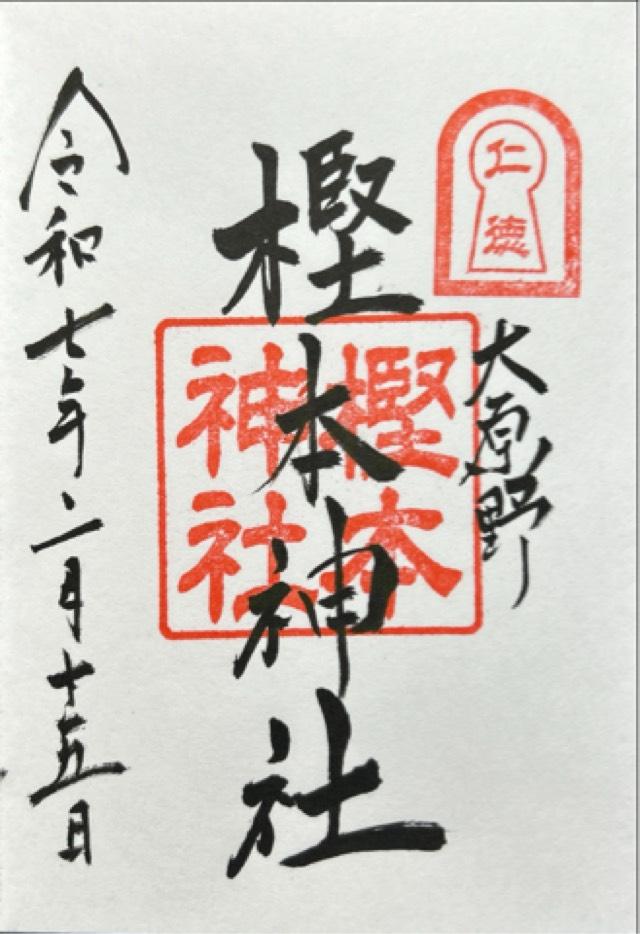 仁徳
大原野
樫本神社
樫本
神社
令和七年二月十五日